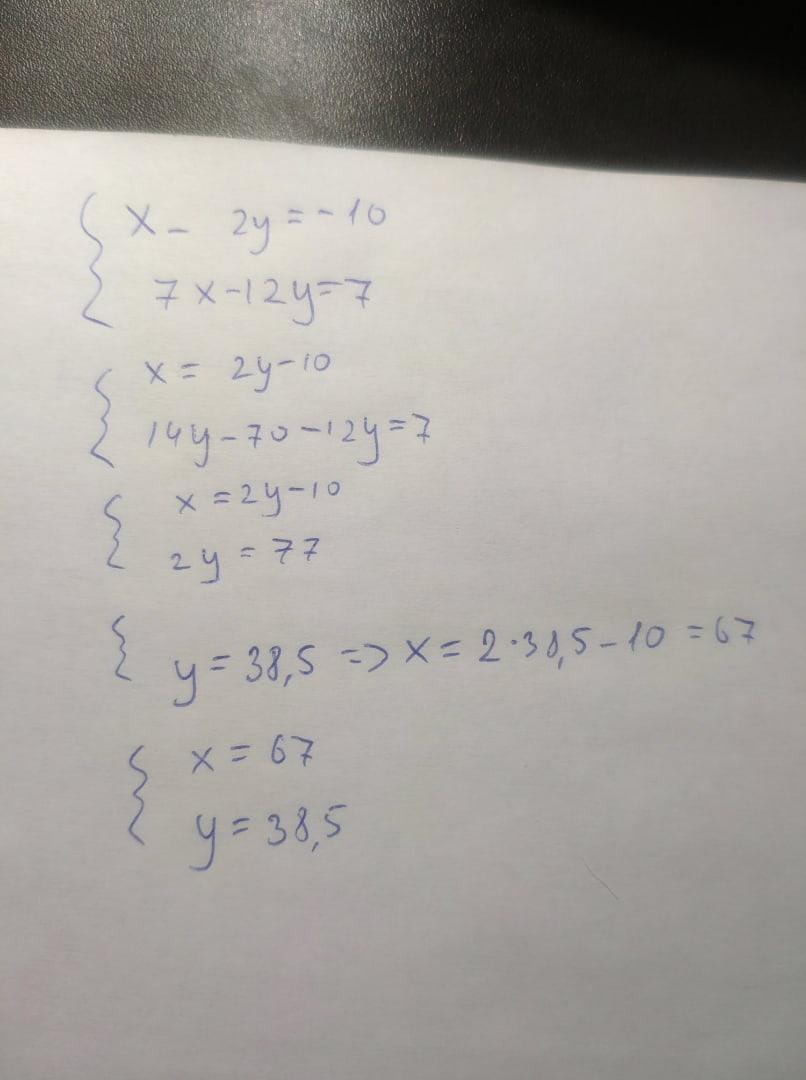 x - 2y = -10
7x - 12y = 7
x = 2y - 10
14y - 70 - 12y = 7
x = 2y - 10
2y = 77
y = 38,5 => x = 2·38,5 - 10 = 67
x = 67
y = 38,5